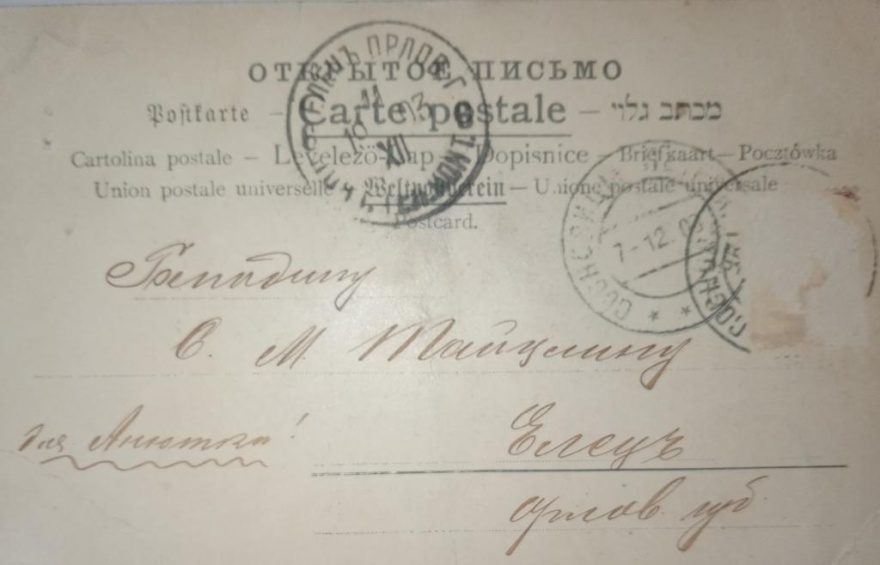 ОТКРЫТОЕ ПИСЬМО
Postkarte – Carte postale – מכתב גלוי
Cartolina postale – Levelező-lap – Dopisnice – Briefkaart – Pocztówka
Union postale universelle – Weltpostverein – Unione postale universale
Postcard.
ЕЛЕЦЪ ОРЛОВ. Г.
10 XII 03
СОСНОВИЦЫ
7-12.0
Господину
С. М. Тайцлину
для Анютки!
Елецъ
Орлов. губ.